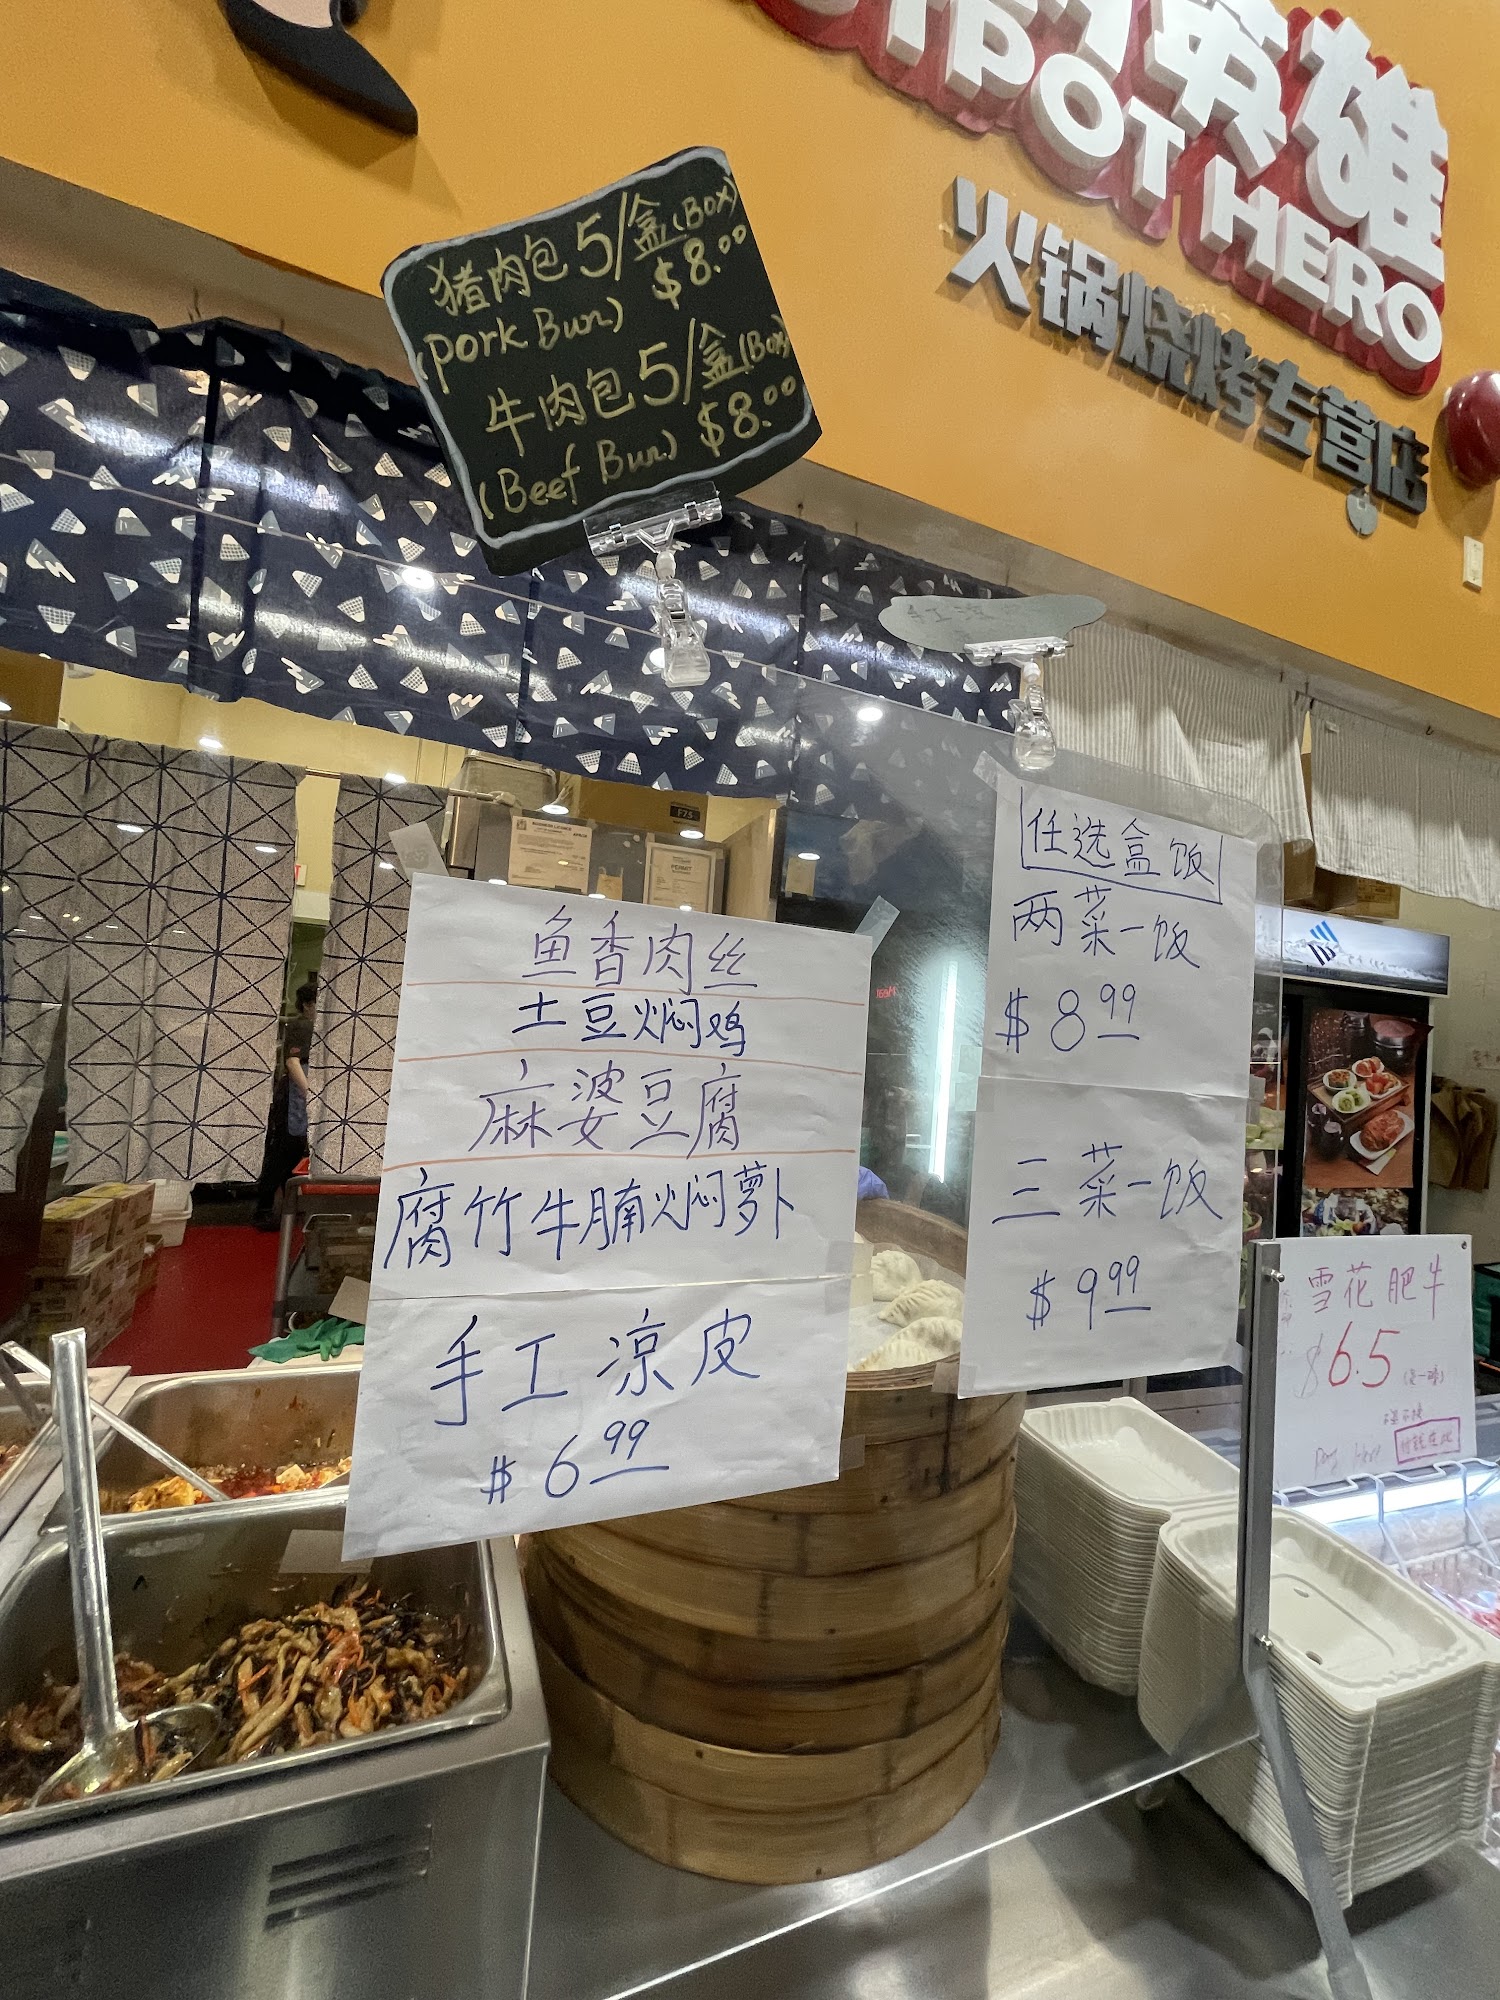 英雄
TPOT HERO
火锅烧烤专营店
猪肉包 5/盒(Box)
(Pork Bun) $8.00
牛肉包 5/盒(Box)
(Beef Bun) $8.00
手工凉皮
鱼香肉丝
土豆焖鸡
麻婆豆腐
腐竹牛腩焖萝卜
手工凉皮
$6.99
任选盒饭
两菜一饭
$8.99
三菜一饭
$9.99
雪花肥牛
$6.5
BUSINESS LICENCE
PERMIT
F75